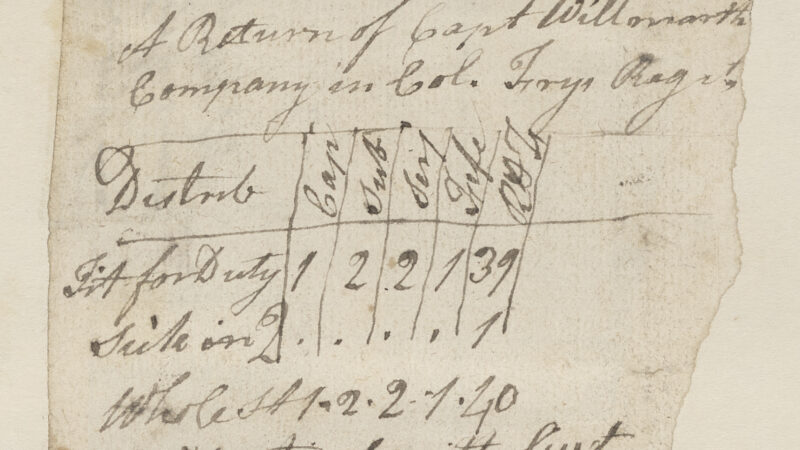 A Return of Capt Willmarth
Company in Col. Frys Regt.
Distrib Cap Sub Ser Fife R&F
Fit for Duty 1 2 2 1 39
Sick in Q . . . . 1
Whole St 1 . 2 . 2 . 1 . 40